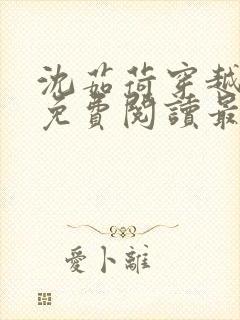 沈茹荷穿越
免費閱讀最
愛卜離